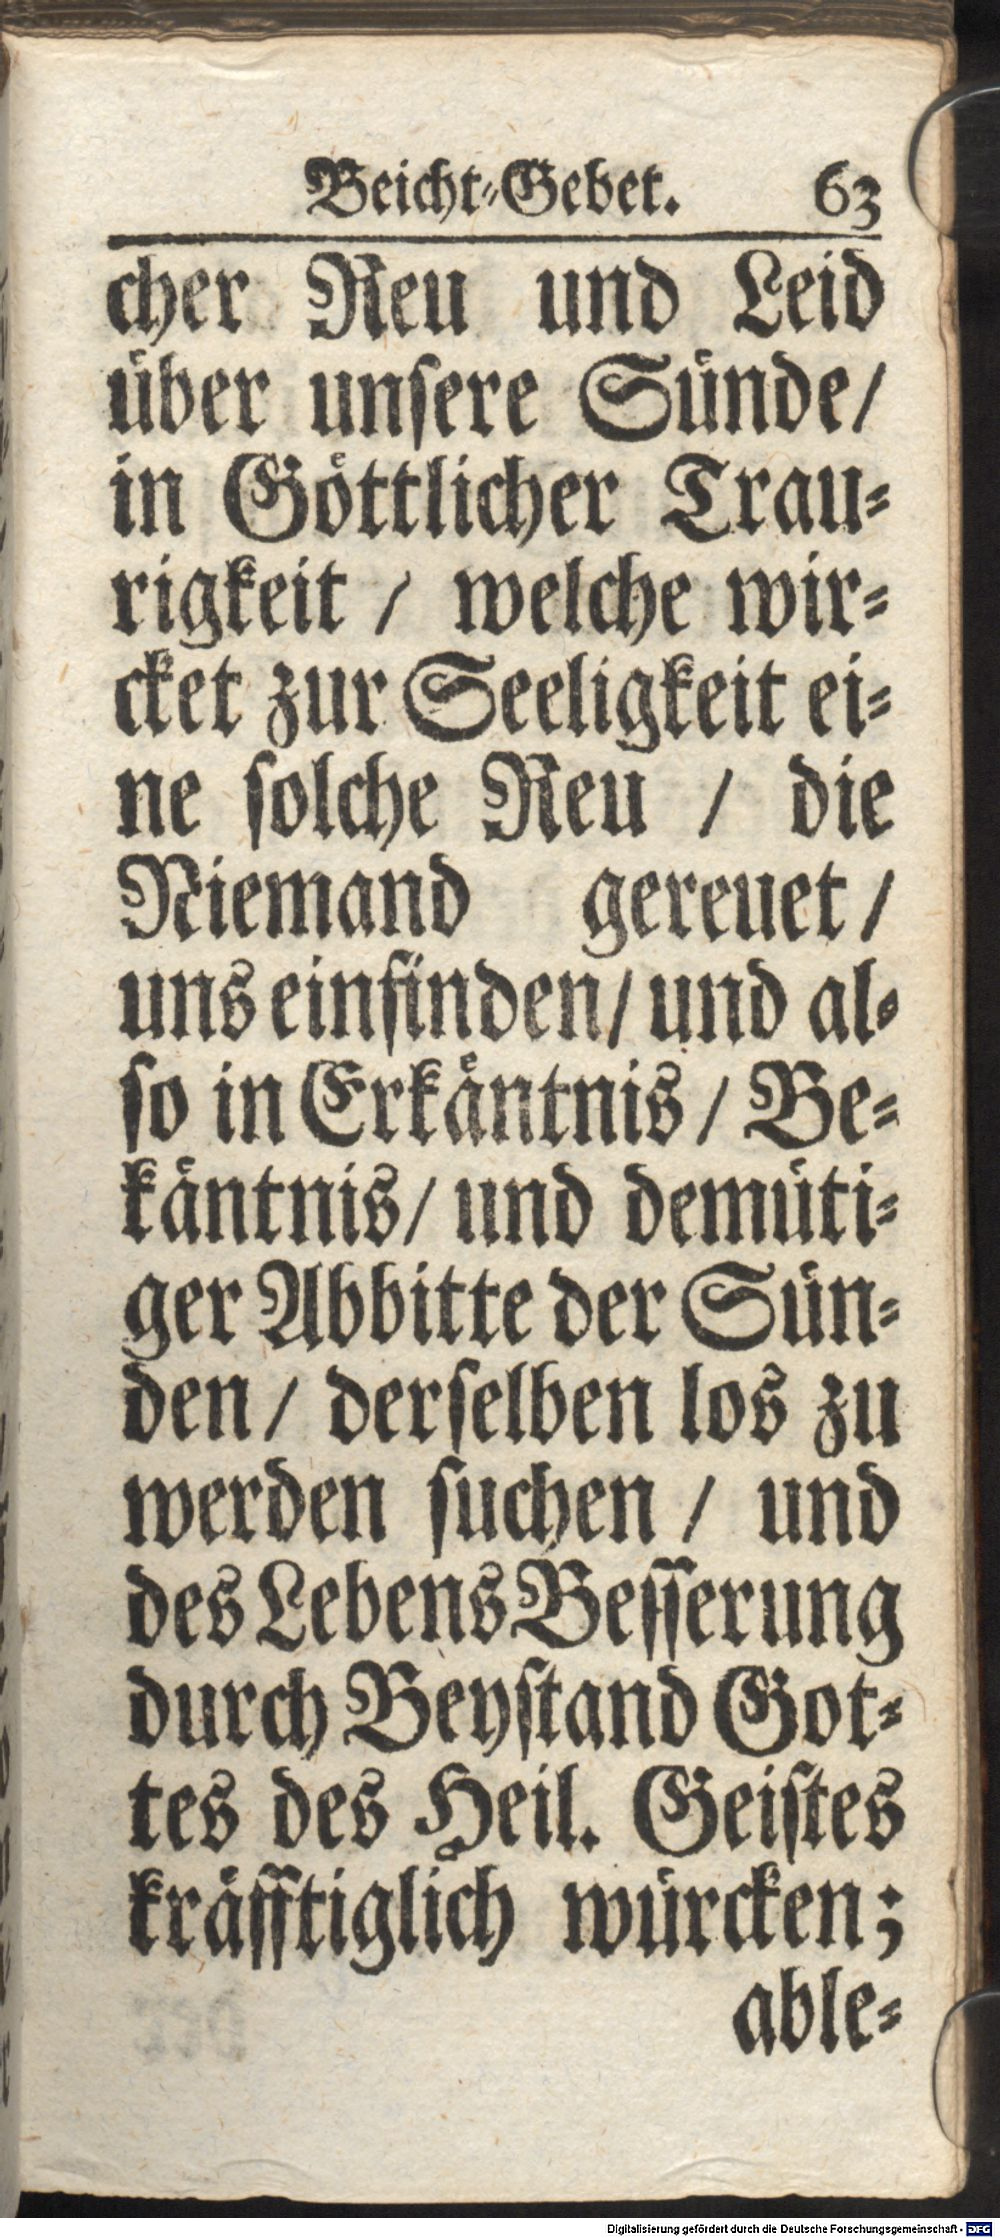 Beicht-Gebet. 63
cher Reu und Leid
über unsere Sünde/
in Göttlicher Trau-
rigkeit / welche wir-
cket zur Seeligkeit ei-
ne solche Reu / die
Niemand gereuet /
uns einfinden/ und al-
so in Erkäntnis / Be-
käntnis/ und demüti-
ger Abbitte der Sün-
den / derselben los zu
werden suchen / und
des Lebens Besserung
durch Beystand Got-
tes des Heil. Geistes
kräfftiglich würcken;
able-
Digitalisierung gefördert durch die Deutsche Forschungsgemeinschaft - DFG